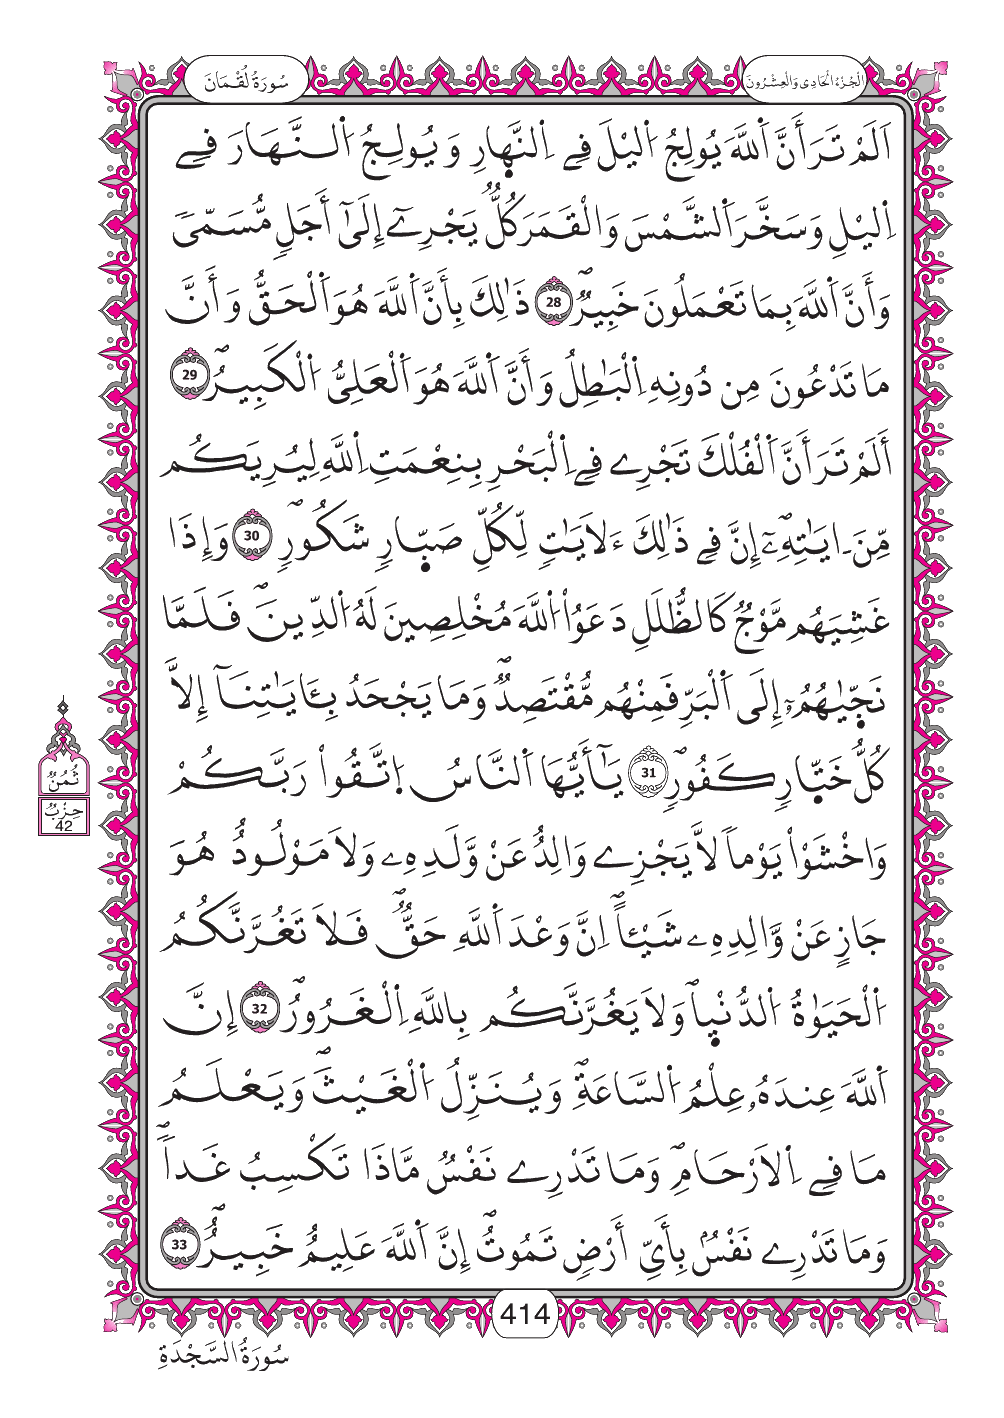 سُورَةُ لُقْمَانَ
الْجُزْءُ الْحَادِي وَالْعِشْرُونَ
اَلَمْ تَرَ أَنَّ اَ۬للَّهَ يُولِجُ اُ۬ليْلَ فِے اِ۬لنَّه۪ارِ وَيُولِجُ اُ۬لنَّهَارَ فِے
اِ۬ليْلِ وَسَخَّرَ اَ۬لشَّمْسَ وَالْقَمَرَ كُلّٞ يَجْرِےٓ إِلَىٰٓ أَجَلٖ مُّسَمّيٗ
وَأَنَّ اَ۬للَّهَ بِمَا تَعْمَلُونَ خَبِيرٞۖ 28 ذَٰلِكَ بِأَنَّ اَ۬للَّهَ هُوَ اَ۬لْحَقُّ وَأَنَّ
مَا تَدْعُونَ مِن دُونِهِ اِ۬لْبَٰطِلُ وَأَنَّ اَ۬للَّهَ هُوَ اَ۬لْعَلِيُّ اُ۬لْكَبِيرُۖ 29
أَلَمْ تَرَ أَنَّ اَ۬لْفُلْكَ تَجْرِے فِے اِ۬لْبَحْرِ بِنِعْمَتِ اِ۬للَّهِ لِيُرِيَكُم
مِّنَ ـ ايَٰتِهِۦٓۖ إِنَّ فِے ذَٰلِكَ ءَلَايَٰتٖ لِّكُلِّ صَبّ۪ارٖ شَكُورٖۖ 30 وَإِذَا
غَشِيَهُم مَّوْجٞ كَالظُّلَلِ دَعَوُاْ اُ۬للَّهَ مُخْلِصِينَ لَهُ اُ۬لدِّينَۖ فَلَمَّا
نَجّ۪يٰهُمُۥٓ إِلَى اَ۬لْبَرِّ فَمِنْهُم مُّقْتَصِدٞۖ وَمَا يَجْحَدُ بِـَٔايَٰتِنَآ إِلَّا
كُلُّ خَتّ۪ارٖ كَفُورٖۖ 31 يَٰٓأَيُّهَا اَ۬لنَّاسُ اُ۪تَّقُواْ رَبَّكُمْ
وَاخْشَوْاْ يَوْماٗ لَّا يَجْزِے وَالِدٌ عَنْ وَّلَدِهِۦ وَلَا مَوْلُودٌ هُوَ
جَازٍ عَنْ وَّالِدِهِۦ شَيْـٔاًۖ اِنَّ وَعْدَ اَ۬للَّهِ حَقّٞۖ فَلَا تَغُرَّنَّكُمُ
اُ۬لْحَيَوٰةُ اُ۬لدُّنْي۪اۖ وَلَا يَغُرَّنَّكُم بِاللَّهِ اِ۬لْغَرُورُۖ 32 إِنَّ
اَ۬للَّهَ عِندَهُۥ عِلْمُ اُ۬لسَّاعَةِۖ وَيُنَزِّلُ اُ۬لْغَيْثَۖ وَيَعْلَمُ
مَا فِے اِ۬لَارْحَامِۖ وَمَا تَدْرِے نَفْسٞ مَّاذَا تَكْسِبُ غَداٗۖ
وَمَا تَدْرِے نَفْسُۢ بِأَيِّ أَرْضٖ تَمُوتُۖ إِنَّ اَ۬للَّهَ عَلِيمٌ خَبِيرٞۖ 33
ثُمُنٌ
حِزْبٌ
42
414
سُورَةُ السَّجْدَةِ